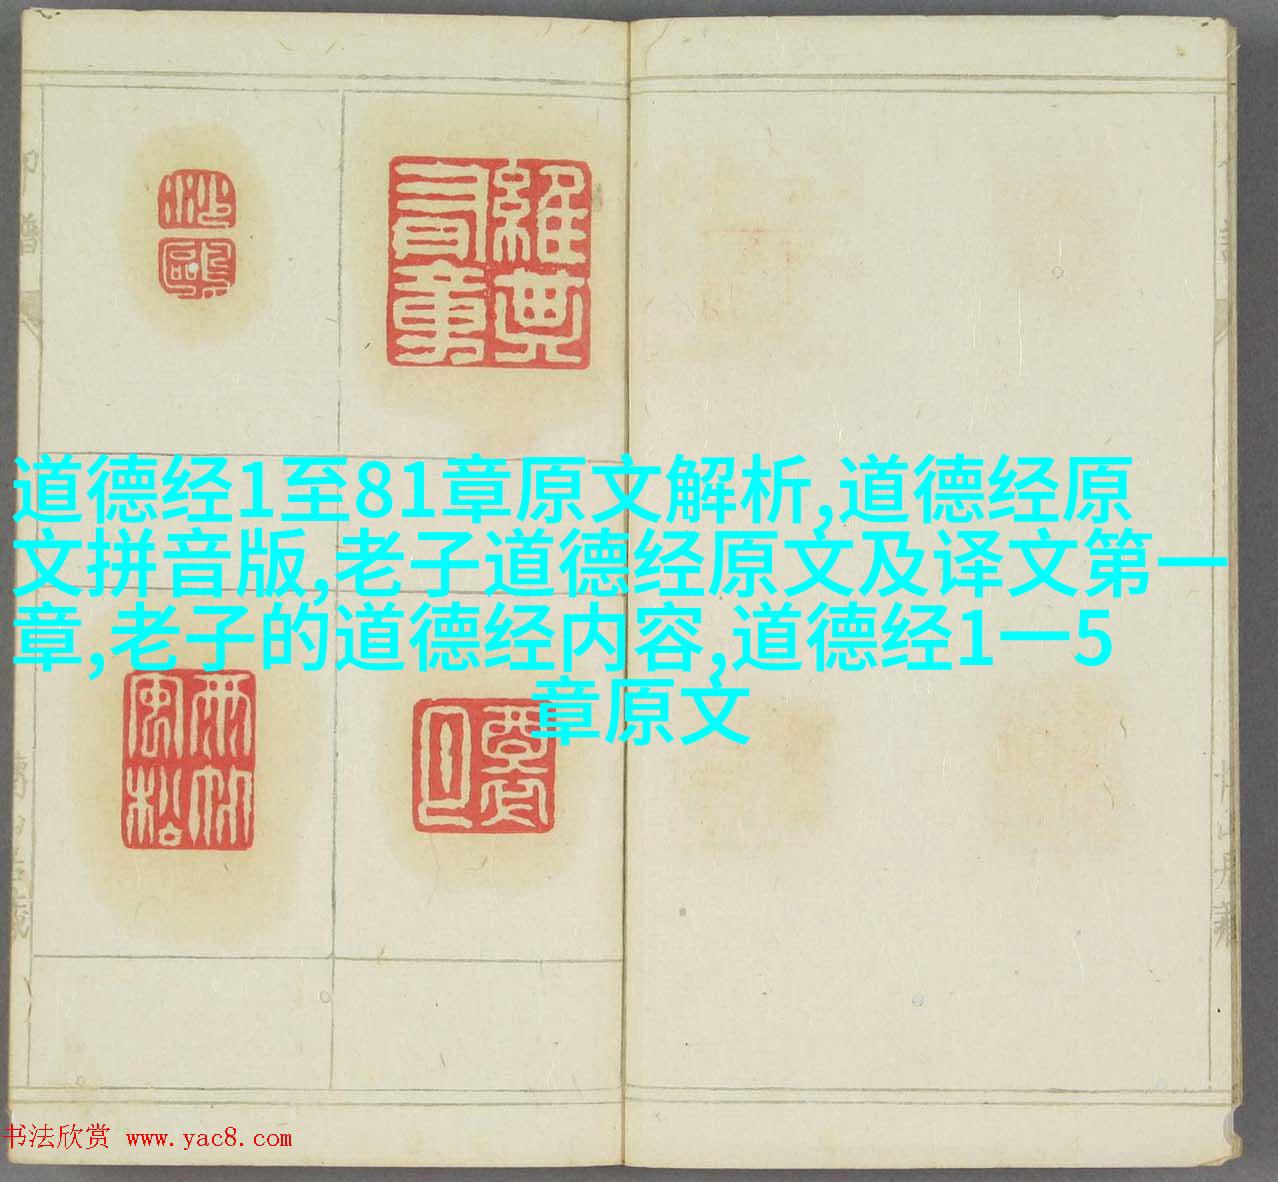 沙鷗
維典有章
道德经1至81章原文解析,道德经原
文拼音版,老子道德经原文及译文第一
章,老子的道德经内容,道德经1一5
章原文
雨竹風松
书法欣赏 www.yac8.com